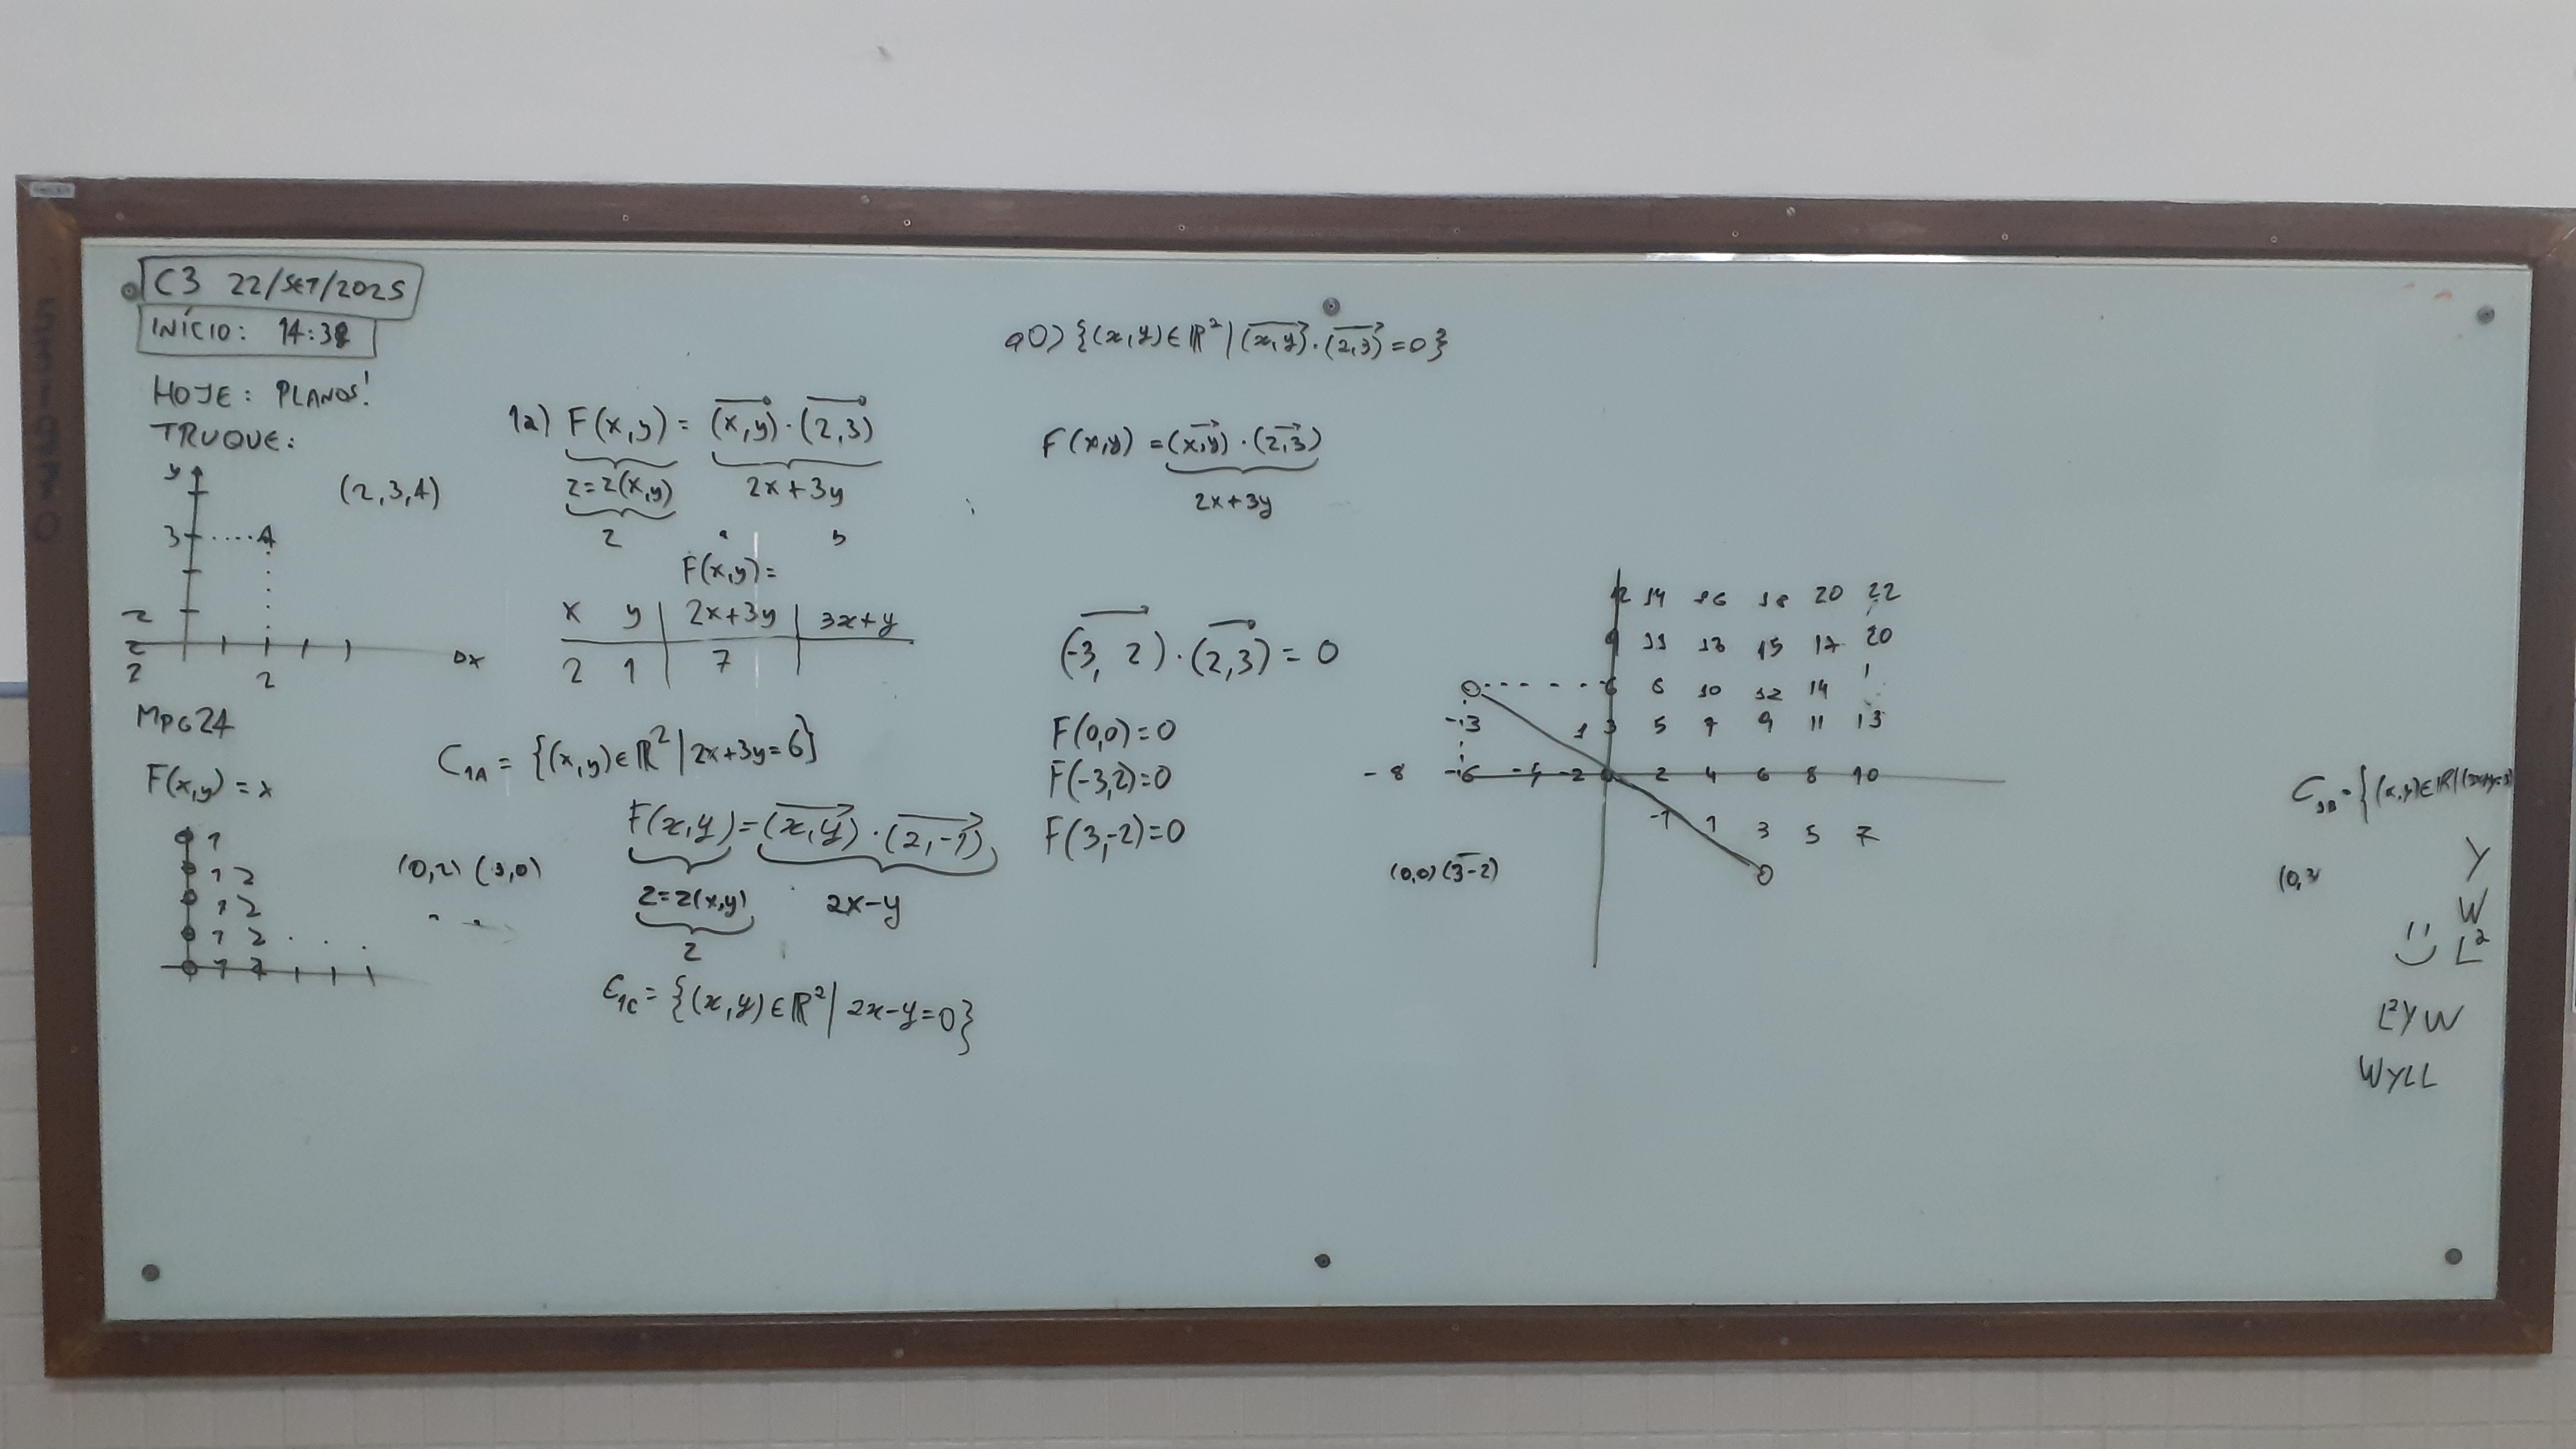 C3 22/SET/2025
INÍCIO: 14:38
HOJE: PLANOS!
TRUQUE:
y
(2,3,4)
3 4
2
x
2
MPG24
F(x,y) = x
1
1 2
1 2
1 2
1 2
(0,2) (3,0)
1a) F(x,y) = (x,y)·(2,3)
z=z(x,y) 2x+3y
z
F(x,y)=
x y 2x+3y 3x+y
2 1 7
C1A = {(x,y)∈ℝ²|2x+3y=6}
F(x,y)=(x,y)·(2,-1)
z=z(x,y) 2x-y
z
C1C = {(x,y)∈ℝ²| 2x-y=0}
a0) {(x,y)∈ℝ²|(x,y)·(2,3)=0}
F(x,y) =(x,y)·(2,3)
2x+3y
(-3, 2)·(2,3)=0
F(0,0)=0
F(-3,2)=0
F(3,-2)=0
12 14 16 18 20 22
9 11 13 15 17 20
6 8 10 12 14
-3 1 3 5 7 9 11 13
-8 -6 -4 -2 0 2 4 6 8 10
-1 1 3 5 7
0
(0,0) (3-2)
(0,3
Y
W
L²
L²YW
WYLL